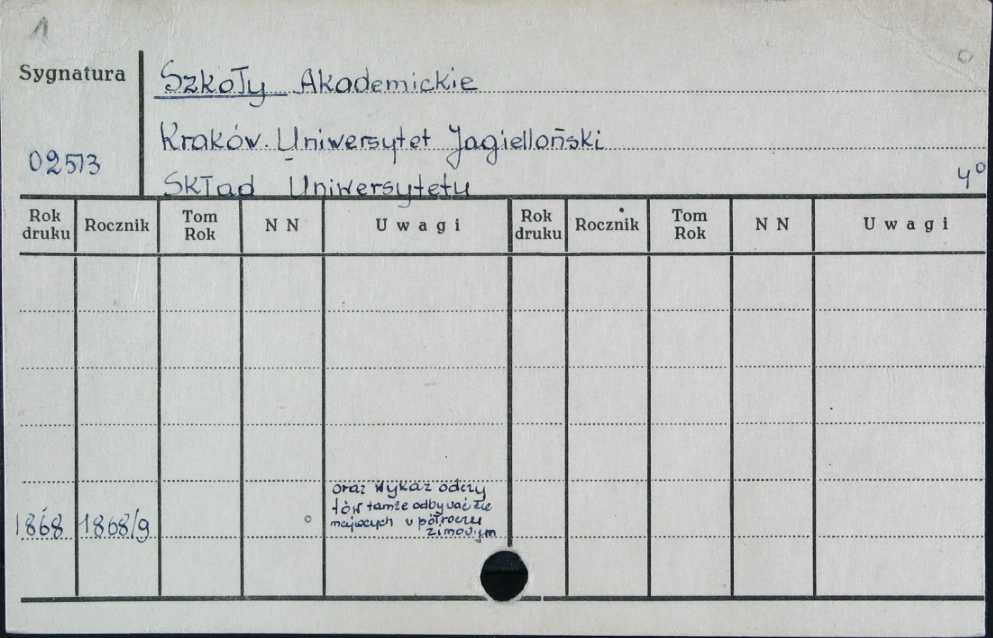 1
Sygnatura
Szkoły Akademickie
Kraków. Uniwersytet Jagielloński
02513
Skład Uniwersytetu
4°
Rok druku
Rocznik
Tom Rok
NN
Uwagi
Rok druku
Rocznik
Tom Rok
NN
Uwagi
1868
1868/9
oraz wykaz odczy
tów tamże odbywać się
mających w półroczu
zimowym